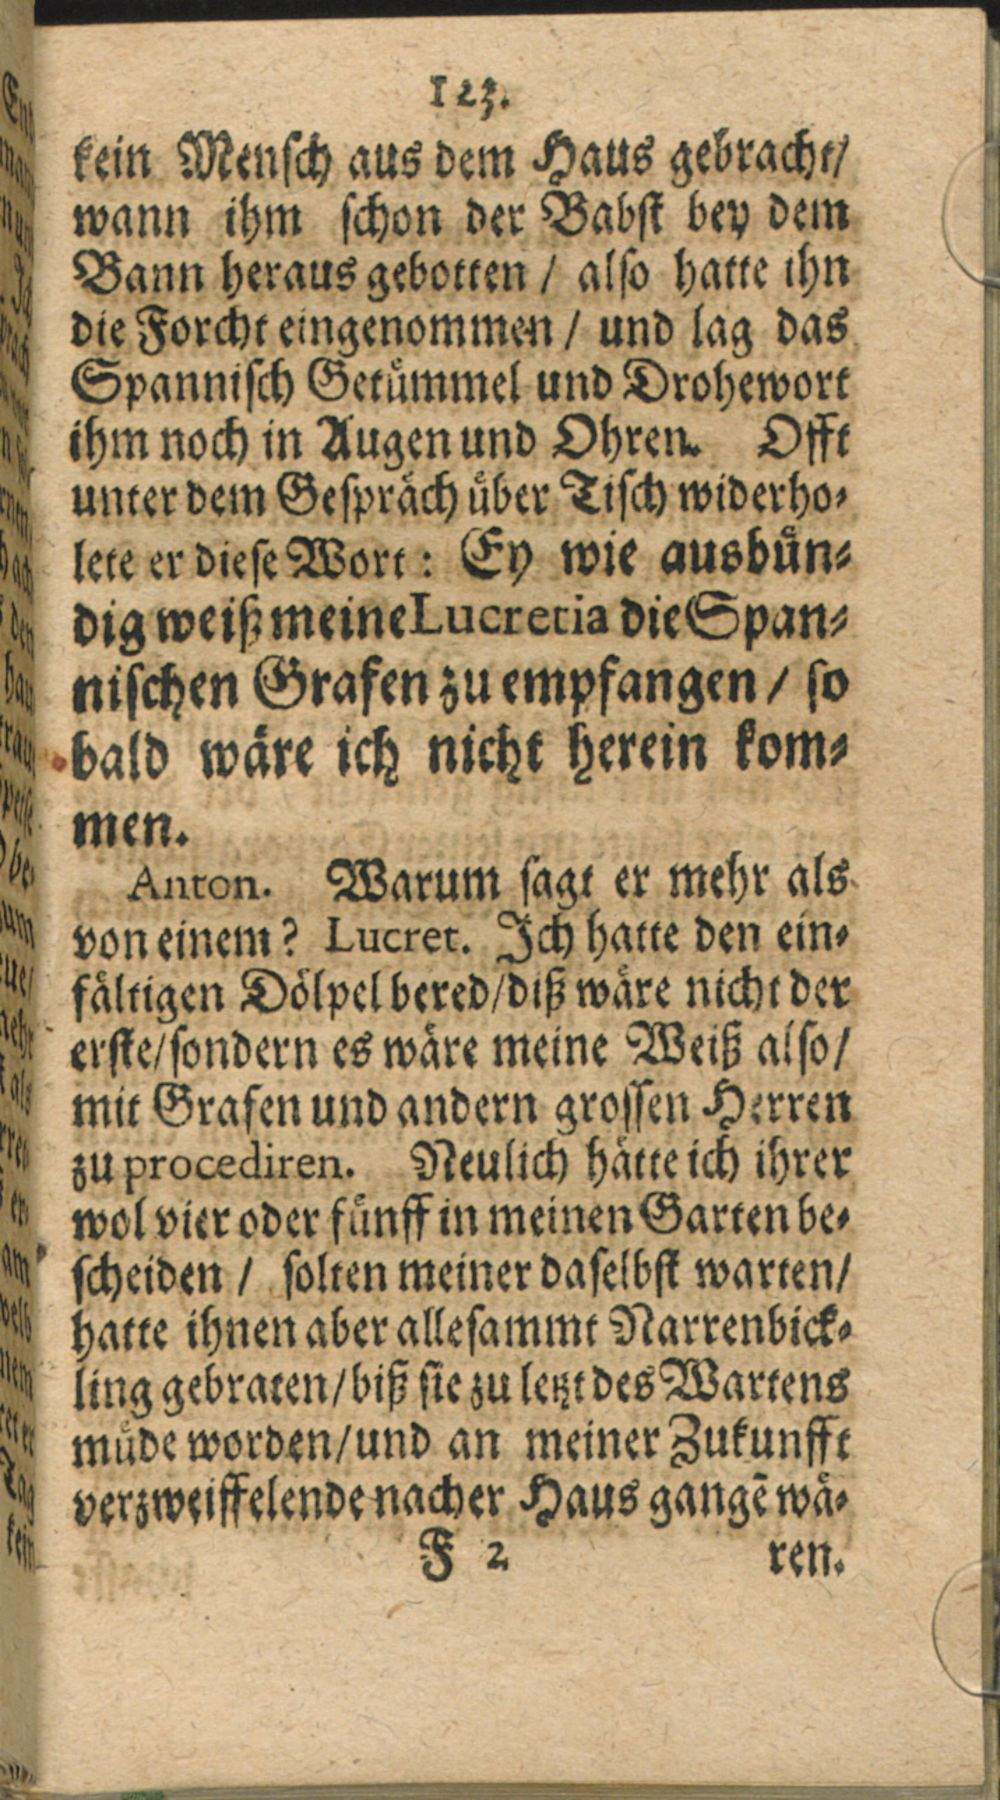 123.
kein Mensch aus dem Haus gebracht/
wann ihm schon der Babst bey dem
Bann heraus gebotten / also hatte ihn
die Forcht eingenommen / und lag das
Spannisch Getümmel und Drohewort
ihm noch in Augen und Ohren. Offt
unter dem Gespräch über Tisch widerho-
lete er diese Wort: Ey wie ausbün-
dig weiß meine Lucretia die Span-
nischen Grafen zu empfangen / so
bald wäre ich nicht herein kom-
men.
Anton. Warum sagt er mehr als
von einem? Lucret. Ich hatte den ein-
fältigen Dölpel bered/diß wäre nicht der
erste/sondern es wäre meine Weiß also/
mit Grafen und andern grossen Herren
zu procediren. Neulich hätte ich ihrer
wol vier oder fünff in meinen Garten be-
scheiden / solten meiner daselbst warten/
hatte ihnen aber allesammt Narrenbick-
ling gebraten/biß sie zu letzt des Wartens
müde worden/und an meiner Zukunfft
verzweiffelende nacher Haus gangē wä-
F 2 ren.